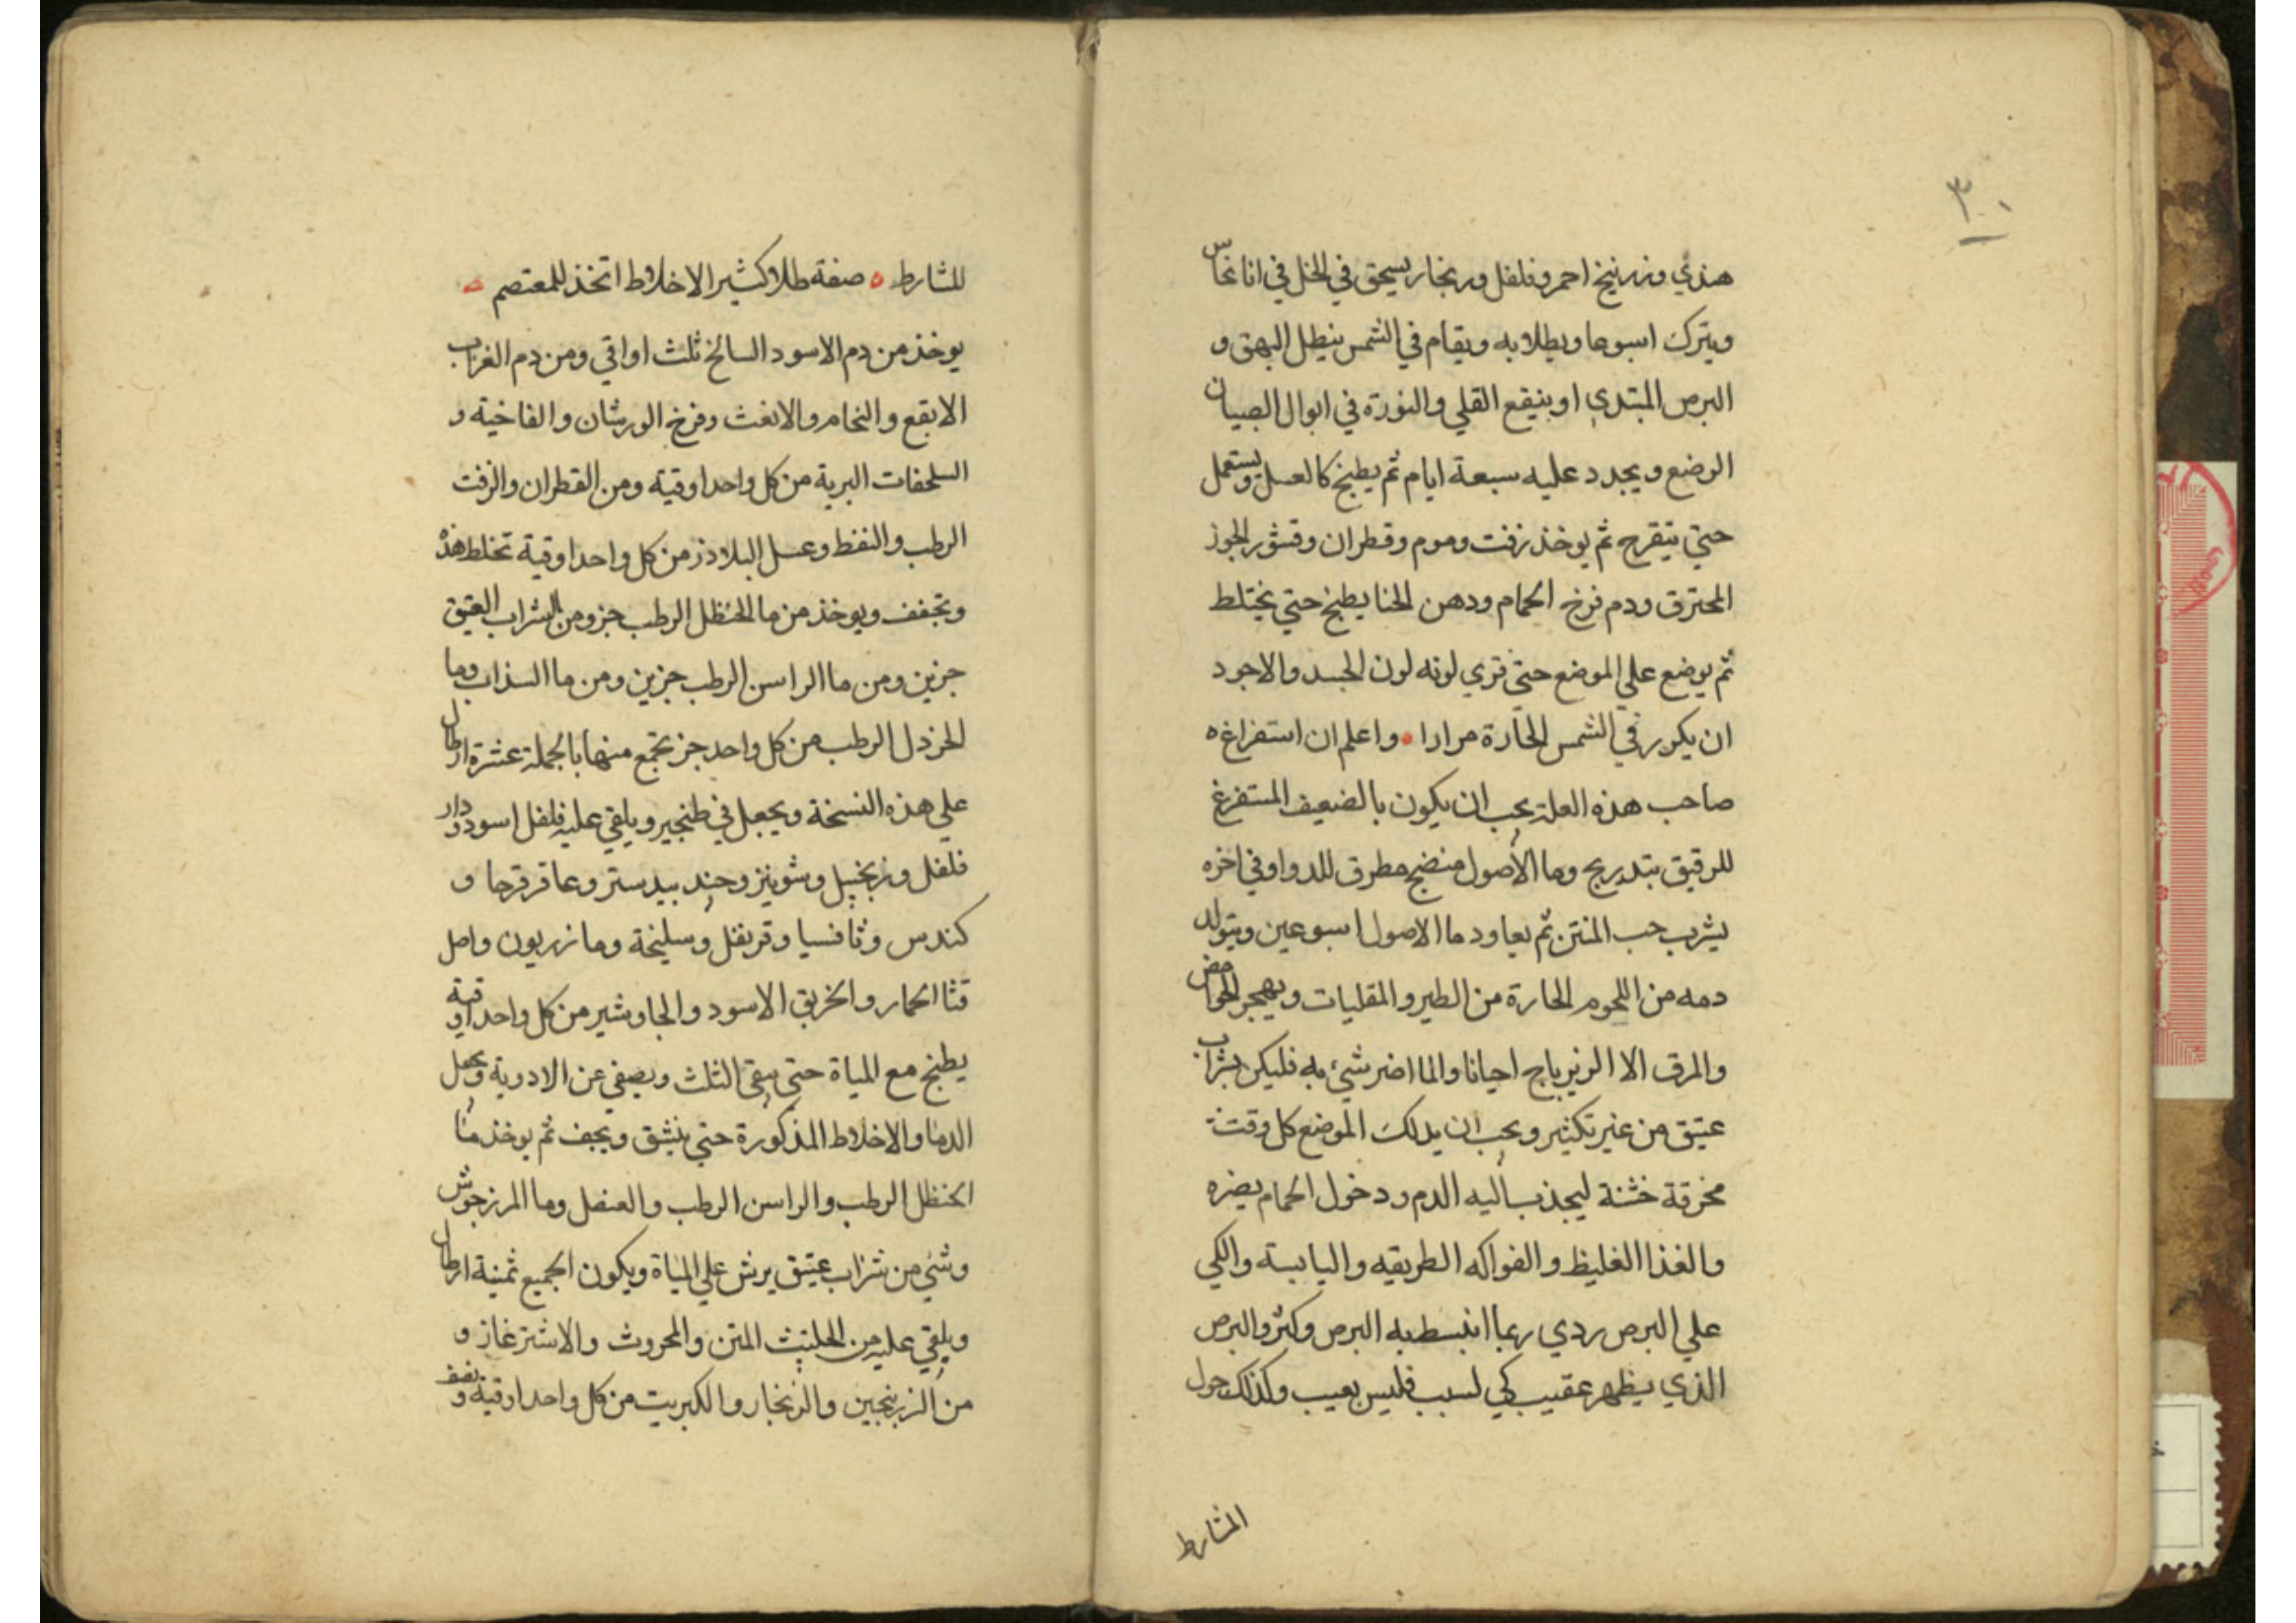 ٣٠
هندي وزرنيخ احمر وفلفل وزنجار يسحق في الخل في انا نحاس
ويترك اسبوعا ويطلا به ويقام في الشمس يبطل البهق و
البرص المبتدي او ينقع القلي والنورة في ابوال الصبيان
الرضع ويجدد عليه سبعة ايام ثم يطبخ كالعسل ويستعمل
حتي يتقرح ثم يوخذ زفت وموم وقطران وقشور الجوز
المحترق ودم فرخ الحمام ودهن الحنا يطبخ حتي يختلط
ثم يوضع علي الموضع حتي تري لونه لون الجسد والاجود
ان يكرر في الشمس الحارة مرارا ه واعلم ان استفراغ ه
صاحب هذه العلة يجب ان يكون بالضعيف المستفرغ
للرقيق بتدريج وما الاصول منضج مطرق للدوا وفي اخره
يشرب حب المنتن ثم يعاود ما الاصول اسبوعين ويتولد
دمه من اللحوم الحارة من الطير والمقليات ويهجر الحوامض
والمرق الا الزيرباج احيانا والما اضر شيء به فليكن بشراب
عتيق من غير تكثير ويجب ان يدلك الموضع كل وقت
بخرقة خشنة ليجذب اليه الدم ودخول الحمام يضره
والغذا الغليظ والفواكه الطريقه واليابسة والكي
علي البرص ردي ربما انبسط به البرص وكثر والبرص
الذي يظهر عقيب كي لسبب فليس بعيب وكذلك حول
المشارط
للمشارط ه صفة طلا كثير الاخلاط اتخذ للمعتصم ه
يوخذ من دم الاسود السالخ ثلث اواقي ومن دم الغراب
الابقع والنحام والانغث وفرخ الورشان والفاخية و
السلحفات البرية من كل واحد اوقية ومن القطران والزفت
الرطب والنفط وعسل البلاذر من كل واحد اوقية تخلط هذه
وتجفف ويوخذ من ما الحنظل الرطب جزو ومن الشراب العتيق
جزين ومن ما الراسن الرطب جزين ومن ما السذاب وما
الخردل الرطب من كل واحد جز يجتمع منها بالجملة عشرة ارطال
علي هذه النسخة ويجعل في طنجير ويلقي عليه فلفل اسود ودار
فلفل وزنجبيل وشونيز وجند بيدستر وعاقرقرحا و
كندس وثافسيا وقرنفل وسليخة ومازريون واصل
قثا الحمار والخربق الاسود والجاوشير من كل واحد اوقية
يطبخ مع المياة حتي يبقي الثلث ويصفي عن الادوية ويجعل
الدما والاخلاط المذكورة حتي ينشق ويجف ثم يوخذ ما
الحنظل الرطب والراسن الرطب والعنصل وما المرزجوش
وشي من شراب عتيق يرش علي المياة ويكون الجميع ثمنية ارطال
ويلقي عليه من الحلتيت المتن والمحروث والاشترغاز و
من الزرنجين والزنجار والكبريت من كل واحد اوقية ونصف